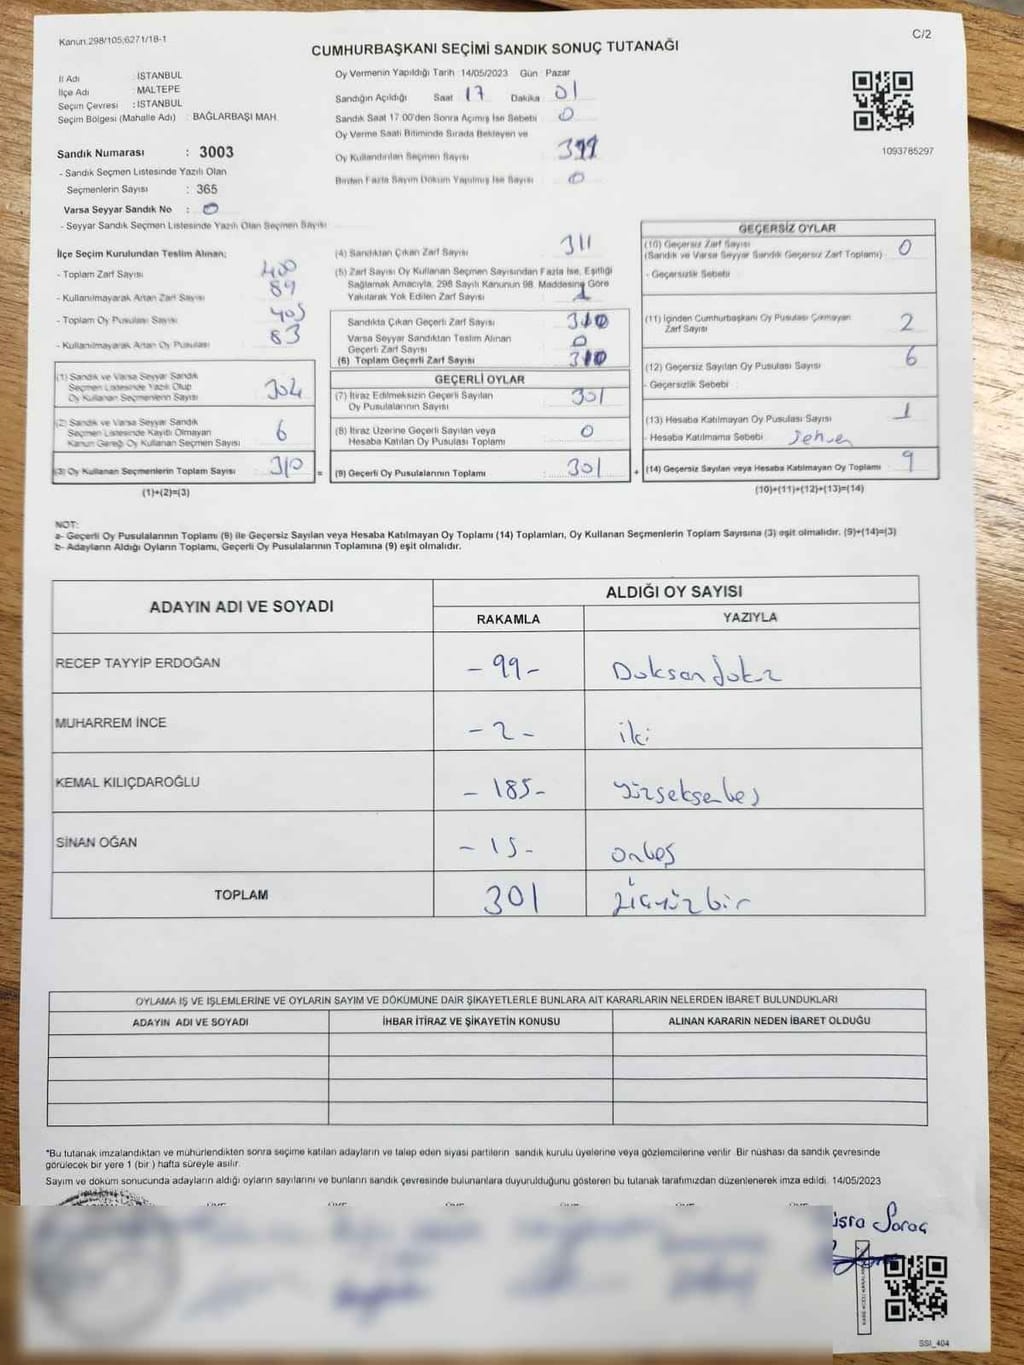 Kanun.298/105;6271/18-1
C/2
CUMHURBAŞKANI SEÇİMİ SANDIK SONUÇ TUTANAĞI
İl Adı : İSTANBUL
İlçe Adı : MALTEPE
Seçim Çevresi : İSTANBUL
Seçim Bölgesi (Mahalle Adı) : BAĞLARBAŞI MAH.
Sandık Numarası : 3003
- Sandık Seçmen Listesinde Yazılı Olan
Seçmenlerin Sayısı : 365
Varsa Seyyar Sandık No : 0
- Seyyar Sandık Seçmen Listesinde Yazılı Olan Seçmen Sayısı
Oy Vermenin Yapıldığı Tarih :14/05/2023 Gün : Pazar
Sandığın Açıldığı Saat 17 Dakika 01
Sandık Saat 17:00'den Sonra Açılmış İse Sebebi 0
Oy Verme Saati Bitiminde Sırada Bekleyen ve
Oy Kullandırılan Seçmen Sayısı
Birden Fazla Sayım Döküm Yapılmış İse Sayısı 0
1093785297
İlçe Seçim Kurulundan Teslim Alınan;
- Toplam Zarf Sayısı 400
- Kullanılmayarak Artan Zarf Sayısı 89
- Toplam Oy Pusulası Sayısı 405
- Kullanılmayarak Artan Oy Pusulası 83
(1) Sandık ve Varsa Seyyar Sandık
Seçmen Listesinde Yazılı Olup
Oy Kullanan Seçmenlerin Sayısı 304
(2) Sandık ve Varsa Seyyar Sandık
Seçmen Listesinde Kayıtlı Olmayan
Kanun Gereği Oy Kullanan Seçmen Sayısı 6
(3) Oy Kullanan Seçmenlerin Toplam Sayısı 310 =
(1)+(2)=(3)
(4) Sandıktan Çıkan Zarf Sayısı 311
(5) Zarf Sayısı Oy Kullanan Seçmen Sayısından Fazla İse, Eşitliği
Sağlamak Amacıyla, 298 Sayılı Kanunun 98. Maddesine Göre
Yakılarak Yok Edilen Zarf Sayısı 1
Sandıkta Çıkan Geçerli Zarf Sayısı 310
Varsa Seyyar Sandıktan Teslim Alınan
Geçerli Zarf Sayısı 0
(6) Toplam Geçerli Zarf Sayısı 310
GEÇERLİ OYLAR
(7) İtiraz Edilmeksizin Geçerli Sayılan
Oy Pusulalarının Sayısı 301
(8) İtiraz Üzerine Geçerli Sayılan veya
Hesaba Katılan Oy Pusulası Toplamı 0
(9) Geçerli Oy Pusulalarının Toplamı 301 +
GEÇERSİZ OYLAR
(10) Geçersiz Zarf Sayısı 0
(Sandık ve Varsa Seyyar Sandık Geçersiz Zarf Toplamı)
- Geçersizlik Sebebi
(11) İçinden Cumhurbaşkanı Oy Pusulası Çıkmayan
Zarf Sayısı 2
(12) Geçersiz Sayılan Oy Pusulası Sayısı 6
- Geçersizlik Sebebi
(13) Hesaba Katılmayan Oy Pusulası Sayısı 1
- Hesaba Katılmama Sebebi Sehven
(14) Geçersiz Sayılan veya Hesaba Katılmayan Oy Toplamı 9
(10)+(11)+(12)+(13)=(14)
NOT:
a- Geçerli Oy Pusulalarının Toplamı (9) ile Geçersiz Sayılan veya Hesaba Katılmayan Oy Toplamı (14) Toplamları, Oy Kullanan Seçmenlerin Toplam Sayısına (3) eşit olmalıdır. (9)+(14)=(3)
b- Adayların Aldığı Oyların Toplamı, Geçerli Oy Pusulalarının Toplamına (9) eşit olmalıdır.
ADAYIN ADI VE SOYADI
ALDIĞI OY SAYISI
RAKAMLA YAZIYLA
RECEP TAYYİP ERDOĞAN - 99 - Doksan dokuz
MUHARREM İNCE - 2 - iki
KEMAL KILIÇDAROĞLU - 185 - yüzseksenbeş
SİNAN OĞAN - 15 - onbeş
TOPLAM 301 üçyüzbir
OYLAMA İŞ VE İŞLEMLERİNE VE OYLARIN SAYIM VE DÖKÜMÜNE DAİR ŞİKAYETLERLE BUNLARA AİT KARARLARIN NELERDEN İBARET BULUNDUKLARI
ADAYIN ADI VE SOYADI İHBAR İTİRAZ VE ŞİKAYETİN KONUSU ALINAN KARARIN NEDEN İBARET OLDUĞU
*Bu tutanak imzalandıktan ve mühürlendikten sonra seçime katılan adayların ve talep eden siyasi partilerin sandık kurulu üyelerine veya gözlemcilerine verilir. Bir nüshası da sandık çevresinde
görülecek bir yere 1 (bir) hafta süreyle asılır.
Sayım ve döküm sonucunda adayların aldığı oyların sayılarını ve bunların sandık çevresinde bulunanlara duyurulduğunu gösteren bu tutanak tarafımızdan düzenlenerek imza edildi. 14/05/2023
SSI_404